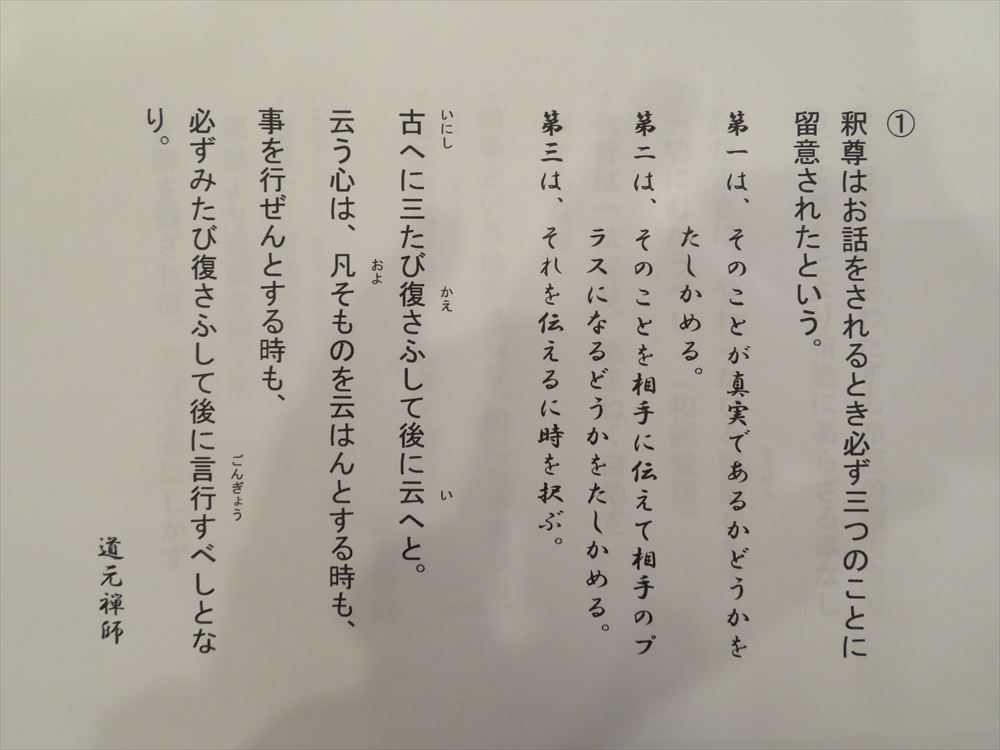 ①
釈尊はお話をされるとき必ず三つのことに
留意されたという。
第一は、そのことが真実であるかどうかを
たしかめる。
第二は、そのことを相手に伝えて相手のプ
ラスになるどうかをたしかめる。
第三は、それを伝えるに時を択ぶ。
いにし かえ い
古へに三たび復さふして後に云へと。
およ
云う心は、凡そものを云はんとする時も、
事を行ぜんとする時も、
ごんぎょう
必ずみたび復さふして後に言行すべしとな
り。
道元禅師